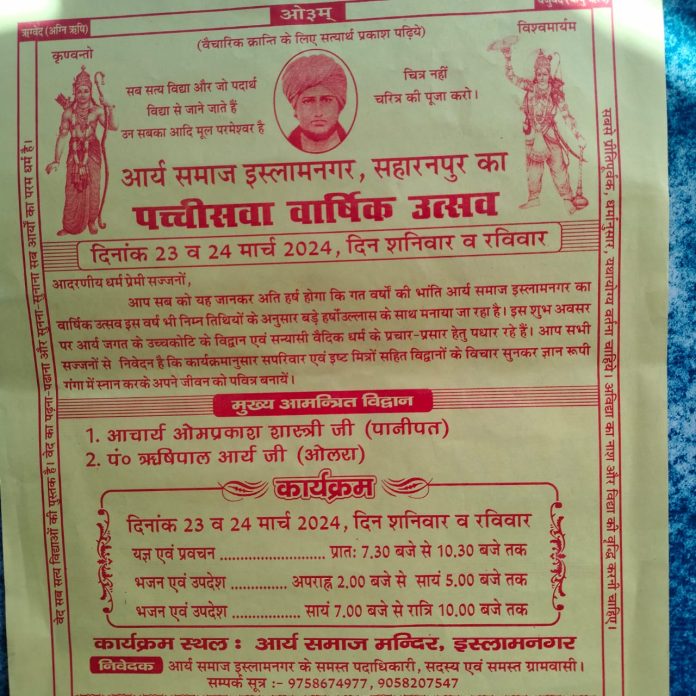 ओ३म्
ऋग्वेद (अग्नि ऋषि)
(वैचारिक क्रान्ति के लिए सत्यार्थ प्रकाश पढ़िये)
कृण्वन्तो
विश्वमार्यम
सब सत्य विद्या और जो पदार्थ
विद्या से जाने जाते हैं
उन सबका आदि मूल परमेश्वर है
चित्र नहीं
चरित्र की पूजा करो।
आर्य समाज इस्लामनगर, सहारनपुर का
पच्चीसवा वार्षिक उत्सव
दिनांक 23 व 24 मार्च 2024, दिन शनिवार व रविवार
आदरणीय धर्म प्रेमी सज्जनों,
आप सब को यह जानकर अति हर्ष होगा कि गत वर्षो की भांति आर्य समाज इस्लामनगर का
वार्षिक उत्सव इस वर्ष भी निम्न तिथियों के अनुसार बड़े हर्षोउल्लास के साथ मनाया जा रहा है। इस शुभ अवसर
पर आर्य जगत के उच्चकोटि के विद्वान एवं सन्यासी वैदिक धर्म के प्रचार-प्रसार हेतु पधार रहे हैं। आप सभी
सज्जनों से निवेदन है कि कार्यक्रमानुसार सपरिवार एवं इष्ट मित्रों सहित विद्वानों के विचार सुनकर ज्ञान रूपी
गंगा में स्नान करके अपने जीवन को पवित्र बनायें।
मुख्य आमन्त्रित विद्वान
1. आचार्य ओमप्रकाश शास्त्री जी (पानीपत)
2. पं० ऋषिपाल आर्य जी (ओलरा)
कार्यक्रम
दिनांक 23 व 24 मार्च 2024, दिन शनिवार व रविवार
यज्ञ एवं प्रवचन .......................... प्रातः 7.30 बजे से 10.30 बजे तक
भजन एवं उपदेश ............... अपराह्न 2.00 बजे से सायं 5.00 बजे तक
भजन एवं उपदेश ................. सायं 7.00 बजे से रात्रि 10.00 बजे तक
कार्यक्रम स्थल : आर्य समाज मन्दिर, इस्लामनगर
निवेदक आर्य समाज इस्लामनगर के समस्त पदाधिकारी, सदस्य एवं समस्त ग्रामवासी।
सम्पर्क सूत्र :- 9758674977, 9058207547
वेद सब सत्य विद्याओं की पुस्तक है। वेद का पढ़ना-पढ़ाना और सुनना-सुनाना सब आर्यो का परम धर्म है।
सबसे प्रीतिपूर्वक, धर्मानुसार, यथायोग्य वर्तना चाहिये। अविद्या का नाश और विद्या की वृद्धि करनी चाहिए।